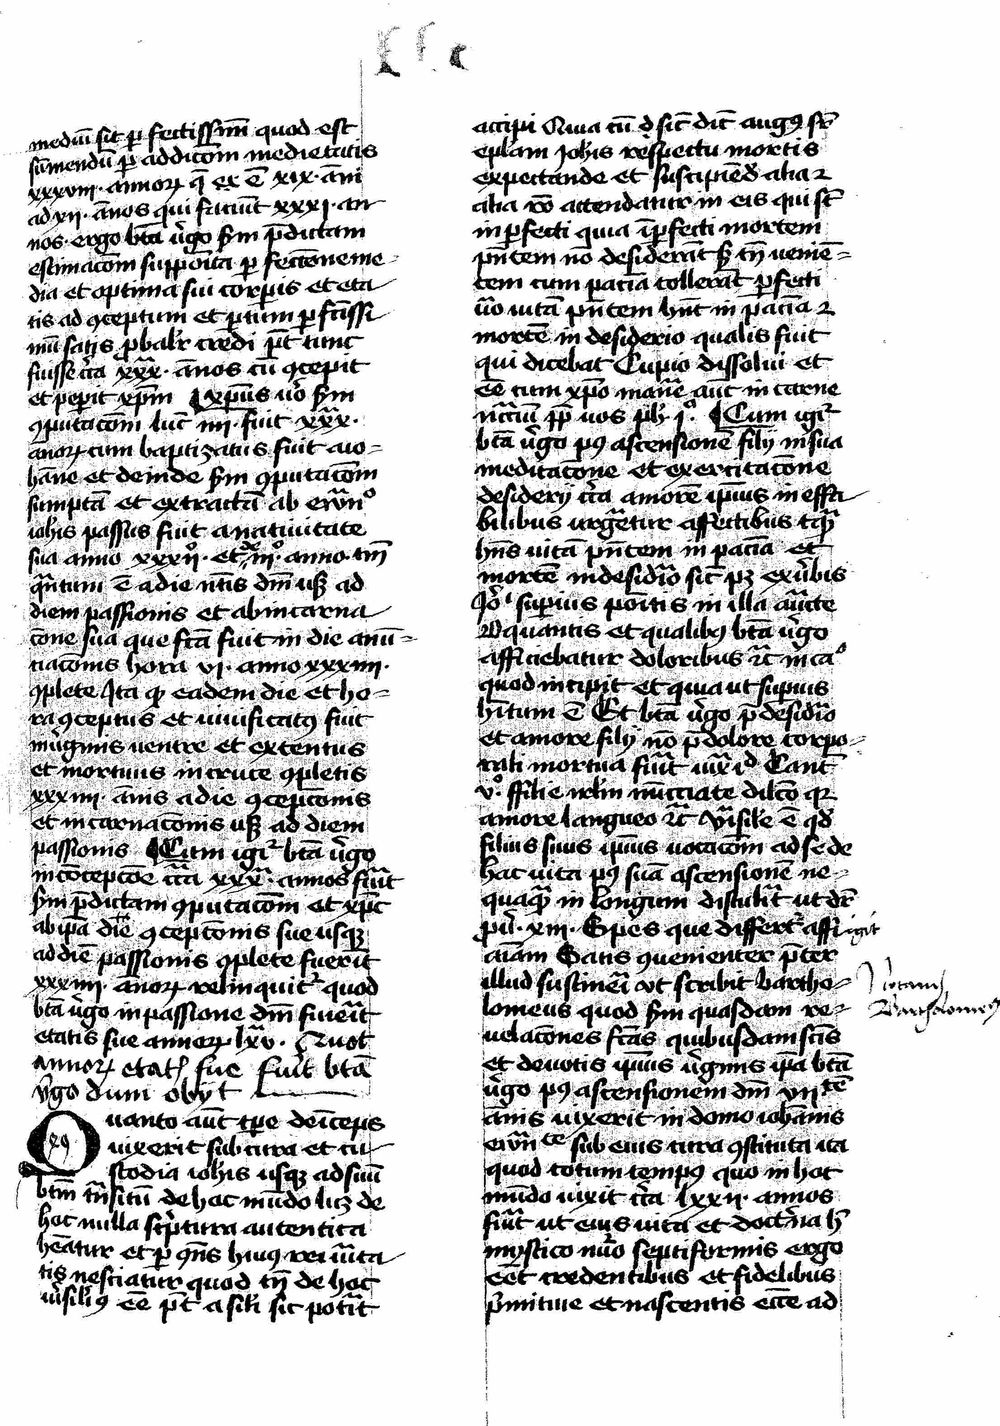 mediũ sit p̱ fectissim̃ quod est
sũmendũ p̱ addicõm medietatis
xxxviii· annoꝝ q̃ ex ẽ xix· ani
ad xii· ãnos qui faciũt xxxi· an
nos· ergo bt̃a ṽgo sm̃ p̃dictam
estimacõm supposita p̱ fectõnem me-
dia et optima sui corꝑis et eta
tis ad ꝯceptum et ꝑtum ꝑfc̃issi
mũ satis ꝓbalr̃ credi põt tunc
fuisse cc̃a xxx· ãnos cũ ꝯcepit
et peperit xp̃m ¶ xp̃us ũo sm̃
ꝯputacõm luc̃ iii· fuit xxx·
anoꝝ cum baptizatus fuit a io-
hãne et deinde sm̃ ꝯputacõm
sumptã et extractã ab ewãⁿᵒ
ioh̃is passus fuit a natiuitate
sua anno xxxiiº· et iiiº· anno· tm̃
q̃ntum ẽ a die nt̃is dñi usꝫ ad
diem passionis et ab incarna
cõne sua que fc̃a fuit in die anũ-
tiacõnis hora vi· anno xxxiiii·
ꝯplete Ita ꝙ eadem die et ho-
ra ꝯceptus et uiuificatꝰ fuit
in ṽginis uentre et extentus
et mortuus in cruce ꝯpletis
xxxiiii· ãnis a die ꝯceptõnis
et incarnacõnis usꝫ ad diem
passionis ¶ Cum igi᷑ bt̃a ṽgo
in cõcepcõe cc̃a xxx· annos fuit̃
sm̃ p̃dictam ꝯputacõm et xp̃c
ab ip̃a die ꝯceptõnis sue usqꝫ
ad diẽ passionis ꝯplete fuerit
xxxiiii· annoꝝ relinquit᷑ quod
bt̃a ṽgo in passione dñi fuerit
etatis sue annoꝝ lxv· Quot
annoꝝ etatis sue fuit bt̃a
ṽgo dum obijt
Quanto aũt tp̃e deiceps
uixerit sub cura et cu
stodia ioh̃is usqꝫ ad suũ
bt̃m tñsitũ de hoc mũdo licꝫ de
hoc nulla scp̃tura autentica
hẽatur et p̱ ꝯñs huiꝰ rei ũita
tis nesciatur quod tñ de hoc
ũisil̃iꝰ eẽ põt a sil̃i sic potũt
accipi Quia cũ
ep̃lam ioh̃is respectu mortis
expectande et suscipiẽd̃ alia ⁊
alia rõo attendatur in eis qui st̃
inꝑfecti quia ĩꝑfecti mortem
pñtem nõ desiderãt sꝫ tñ uenie-
tem cum pacĩa tollerãt ꝑfecti
ũo uitã pñtem hñt in pacĩa ⁊
mortẽ in desiderio qualis fuit
qui dicebat Cupio dissolui et
eẽ cum xp̃o manẽ aũt in carne
nc̃ium ꝓp̱ uos ph̃ iº· ¶ Cum igi᷑
bt̃a ṽgo pꝰ ascensionẽ filij in sua
meditacõne et exercitacõne
desiderij cc̃a amorẽ ip̃ius in effa
bilibus urgẽtur affectibus tq̃
hñs uitã pñtem in pacĩa et
mortẽ in desidĩo sic pꝫ ex ṽbis
superius positis in illa aũcte
quantis et qualibꝫ bt̃a ṽgo
afficiebatur doloribus et̃c in caº
quod incipit et quia ut supius
hĩtum ẽ Et bt̃a ṽgo p̃ desidĩo
et amore filij nõ p̃ dolore corpo-
rali mortua fuit iux̃ id Cant̃
vº· ffilie irl̃m nũcciate dilc̃o qꝛ
amore langueo et̃c ũisil̃e ẽ qd̃
filius suus ip̃ius uocacõm ad se de
hac uita pꝰ suã ascensionẽ ne-
quaq̃ in longum distulit̃ ut dr̃
pũ· xiii· Spes que differt᷑ affligit
aĩam Satis ꝯuenienter p̃ter
illud sustineã ut scribit bartho-
lomeus quod sm̃ quasdam re-
uelacõnes fc̃as quibusdam sc̃is
et deuotis ip̃ius ṽginis ip̃a bt̃a
ṽgo pꝰ ascensionem dñi viiᵗᵉ̃
ãnis uixerit in domo ioh̃anis
ewãⁿᵗᵉ sub eius cura ꝯstituta ita
quod totum tempꝰ quo in hoc
mũdo uixit cc̃a lxxii· annos
fuit ut eius uita et doctĩa h̃
mystico nũo septiformis ergo
eẽt credentibus et fidelibus
p̃mitiue et nascentis ecc̃e ad
Notanđ
Bartholomeꝰ